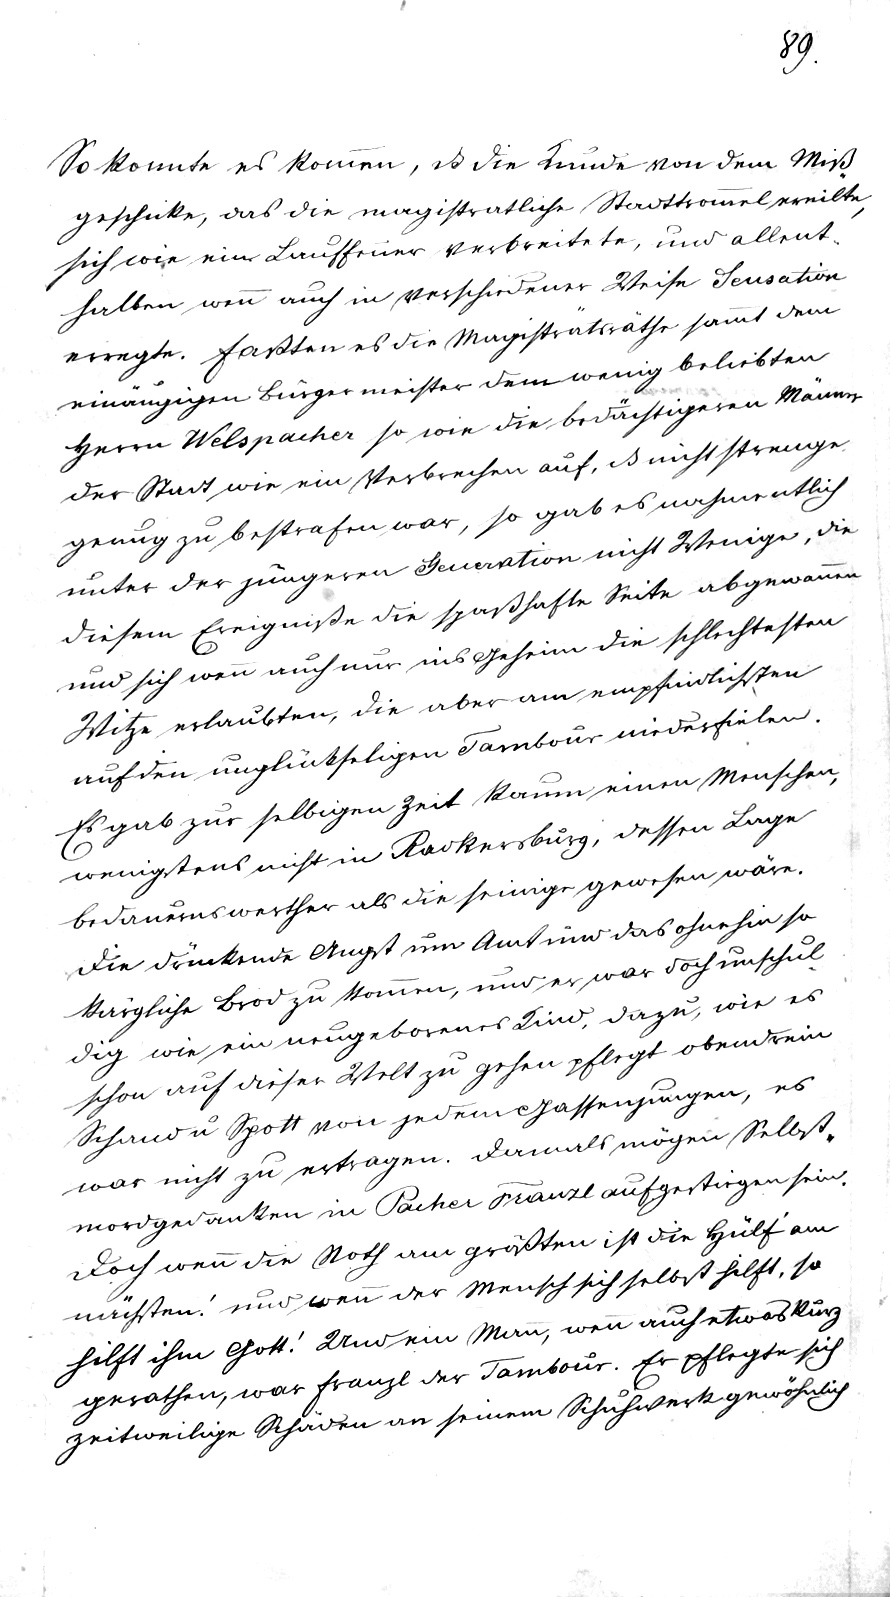 89.
So konnte es kom̄en, ds die Kunde von dem Miß
geschicke, das die magistratliche Stadttrom̄el ereilte,
sich wie ein Lauffeuer verbreitete, und allent-
halben wen̄ auch in verschiedener Weise Sensation
erregte. Faßten es die Magistratsräthe sam̄t dem
einäugigen Bürgermeister dem wenig beliebten
Herrn Welspacher so wie die bedächtigeren Männer
der Stadt wie ein Verbrechen auf, ds nicht strenge
genug zu bestrafen war, so gab es nahmentlich
unter der jüngeren Generation nicht Wenige, die
diesem Ereigniße die spaßhafte Seite abgewan̄en
und sich wen̄ auch nur ins Geheim die schlechtesten
Witze erlaubten, die aber am empfindlichsten
auf den unglückseligen Tambour niederfielen.
Es gab zur selbigen Zeit kaum einen Menschen,
wenigstens nicht in Radkersburg, dessen Lage
bedauernswerther als die seinige gewesen wäre.
Die drückende Angst um Amt und das ohnehin so
kärgliche Brod zu kom̄en, und er war doch unschul-
dig wie ein neugeborenes Kind, dazu, wie es
schon auf dieser Welt zu gehen pflegt obendrein
Schand u Spott von jedem Gassenjungen, es
war nicht zu ertragen. Damals mögen Selbst-
mordgedanken in Pacher Franzl aufgestiegen sein.
Doch wen̄ die Noth am größten ist die Hülf am
nächsten! und wen̄ der Mensch sich selbst hilft, so
hilft ihm Gott! Und ein Man̄, wen̄ auch etwas kurz
gerathen, war Franzl der Tambour. Er pflegte sich
zeitweilige Schäden an seinem Schuhwerk gewöhnlich